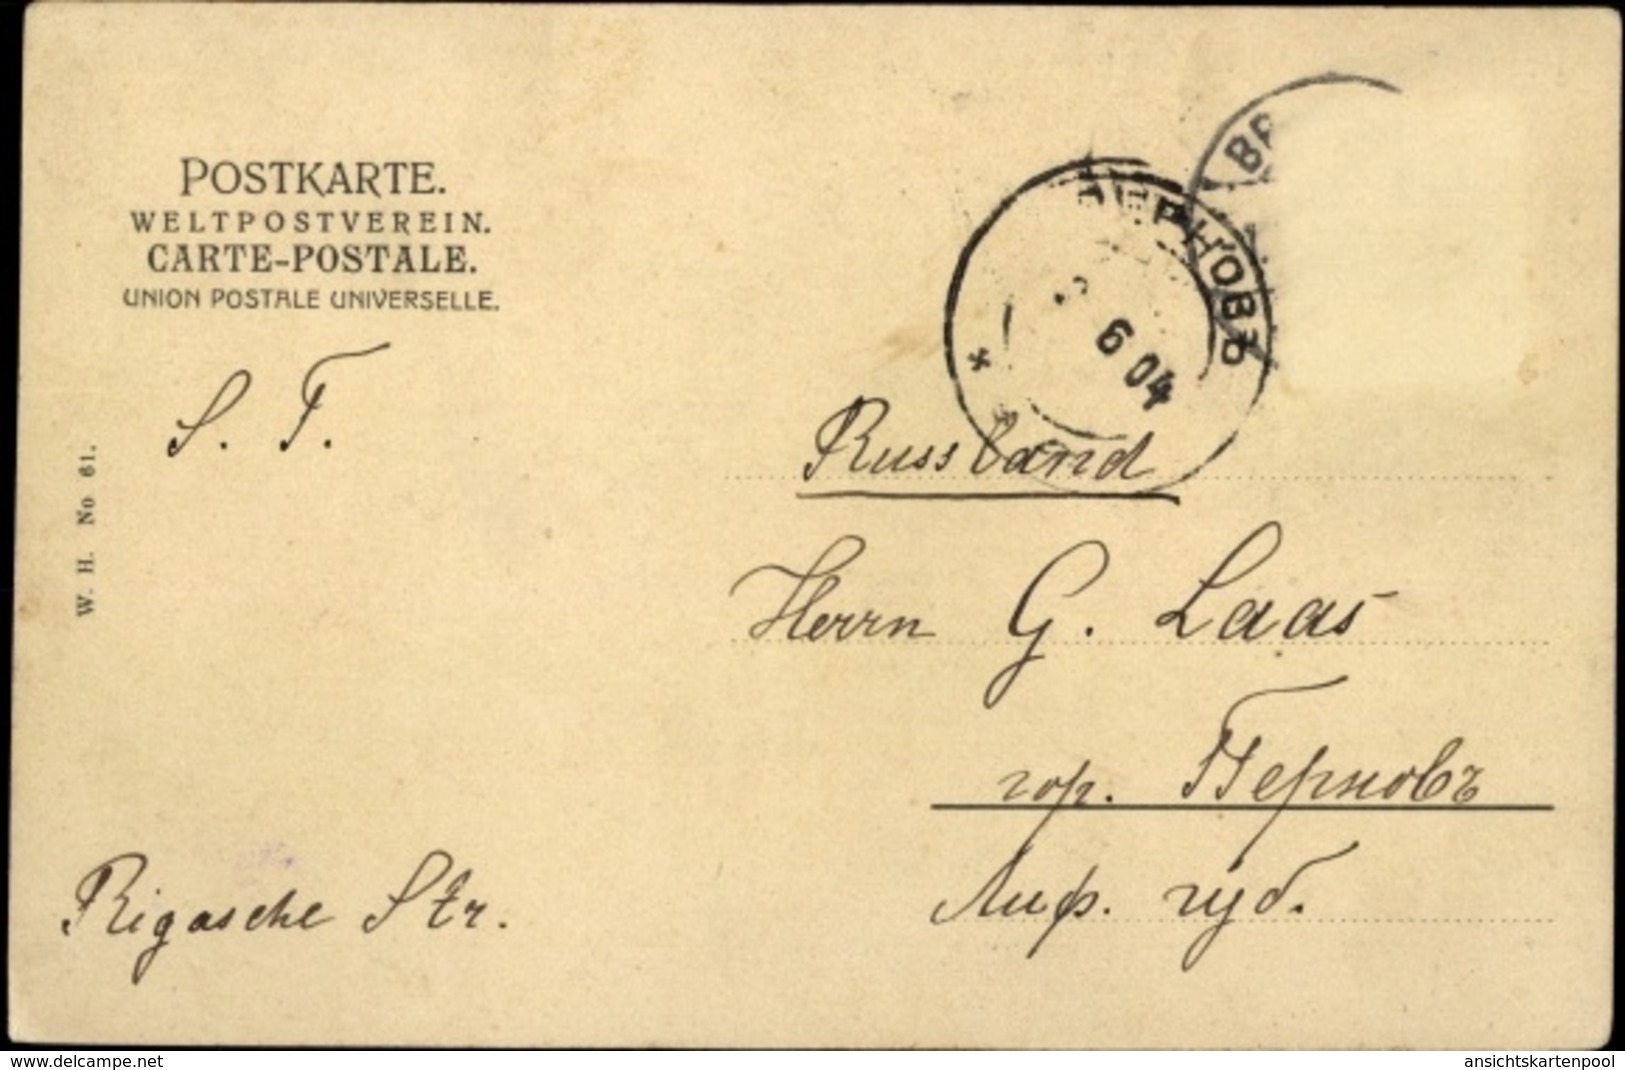 POSTKARTE.
WELTPOSTVEREIN.
CARTE-POSTALE.
UNION POSTALE UNIVERSELLE.
S. T.
W. H. No 61.
ПЕРНОВЪ
6 04
Russland
Herrn G. Laas
гор. Перновъ
Лиф. губ.
Rigasche Str.
www.delcampe.net
ansichtskartenpool